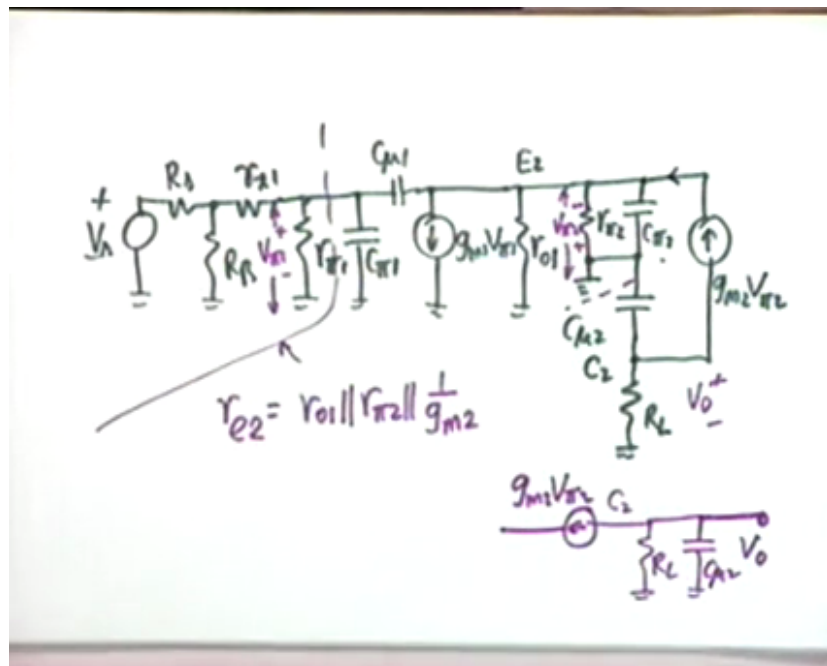 Cμ1
E2
+
Rs
rx1
Vs
RB
+
Vπ1
-
rπ1
Cπ1
gm1Vπ1
r01
-
Vπ2
+
rπ2
Cπ2
gm2Vπ2
Cμ2
C2
RL
+
Vo
-
re2 = r01 || rπ2 || 1/gm2
gm2Vπ2
C2
RL
Cμ2
Vo